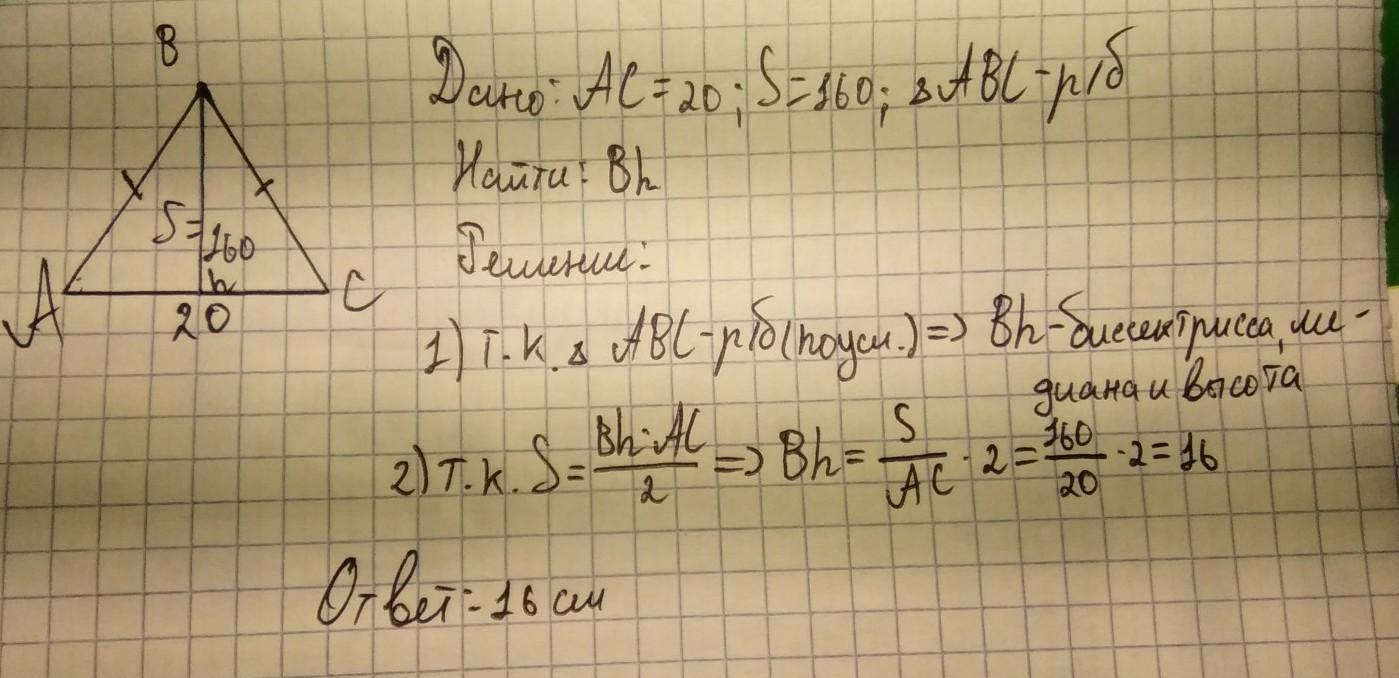 B
Дано: AC=20; S=160; △ABC-р/б
Найти: Bh
S=160
h
A
C
20
Решение:
1) т.к. △ ABC-р/б(поусл.)=> Bh-биссектрисса, ме-
диана и высота
2) т.к. S= Bh·AC/2 => Bh= S/AC · 2= 160/20 ·2=16
Ответ:16 см